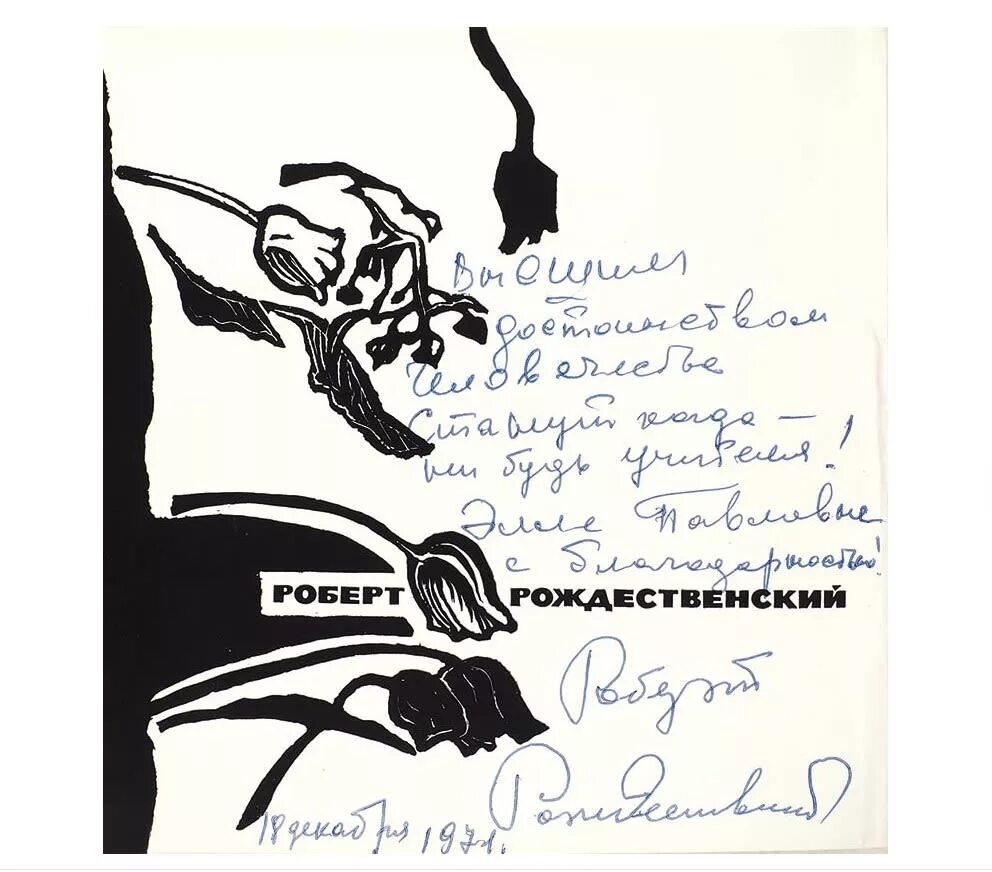 Высшим
достоинством
человечества
станут когда-
нибудь учителя!
Элле Павловне
с благодарностью!
РОБЕРТ РОЖДЕСТВЕНСКИЙ
Роберт
Рождественский
18 декабря 1971.